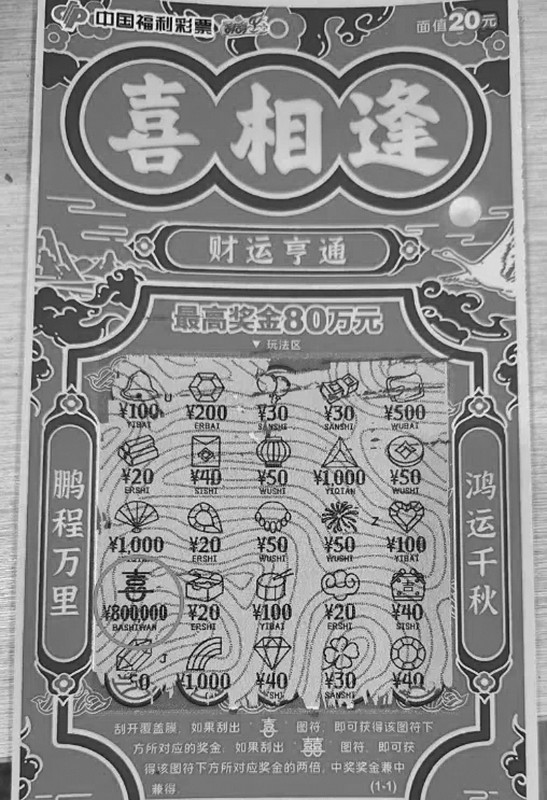 中国福利彩票 刮刮乐
面值20元
喜相逢
财运亨通
最高奖金80万元
▼ 玩法区
鹏程万里
鸿运千秋
¥100 ¥200 ¥30 ¥30 ¥500
YIBAI ERBAI SANSHI SANSHI WUBAI
¥20 ¥40 ¥50 ¥1,000 ¥50
ERSHI SISHI WUSHI YIQIAN WUSHI
¥1,000 ¥20 ¥50 ¥50 ¥100
ERSHI WUSHI WUSHI YIBAI
喜
¥800,000 ¥20 ¥100 ¥20 ¥40
BASHIWAN ERSHI YIBAI ERSHI SISHI
50 ¥1,000 ¥40 ¥30 ¥40
SANSHI
刮开覆盖膜，如果刮出“喜”图符，即可获得该图符下
方所对应的奖金，如果刮出“囍”图符，即可获
得该图符下方所对应奖金的两倍，中奖奖金兼中
兼得。
(1-1)